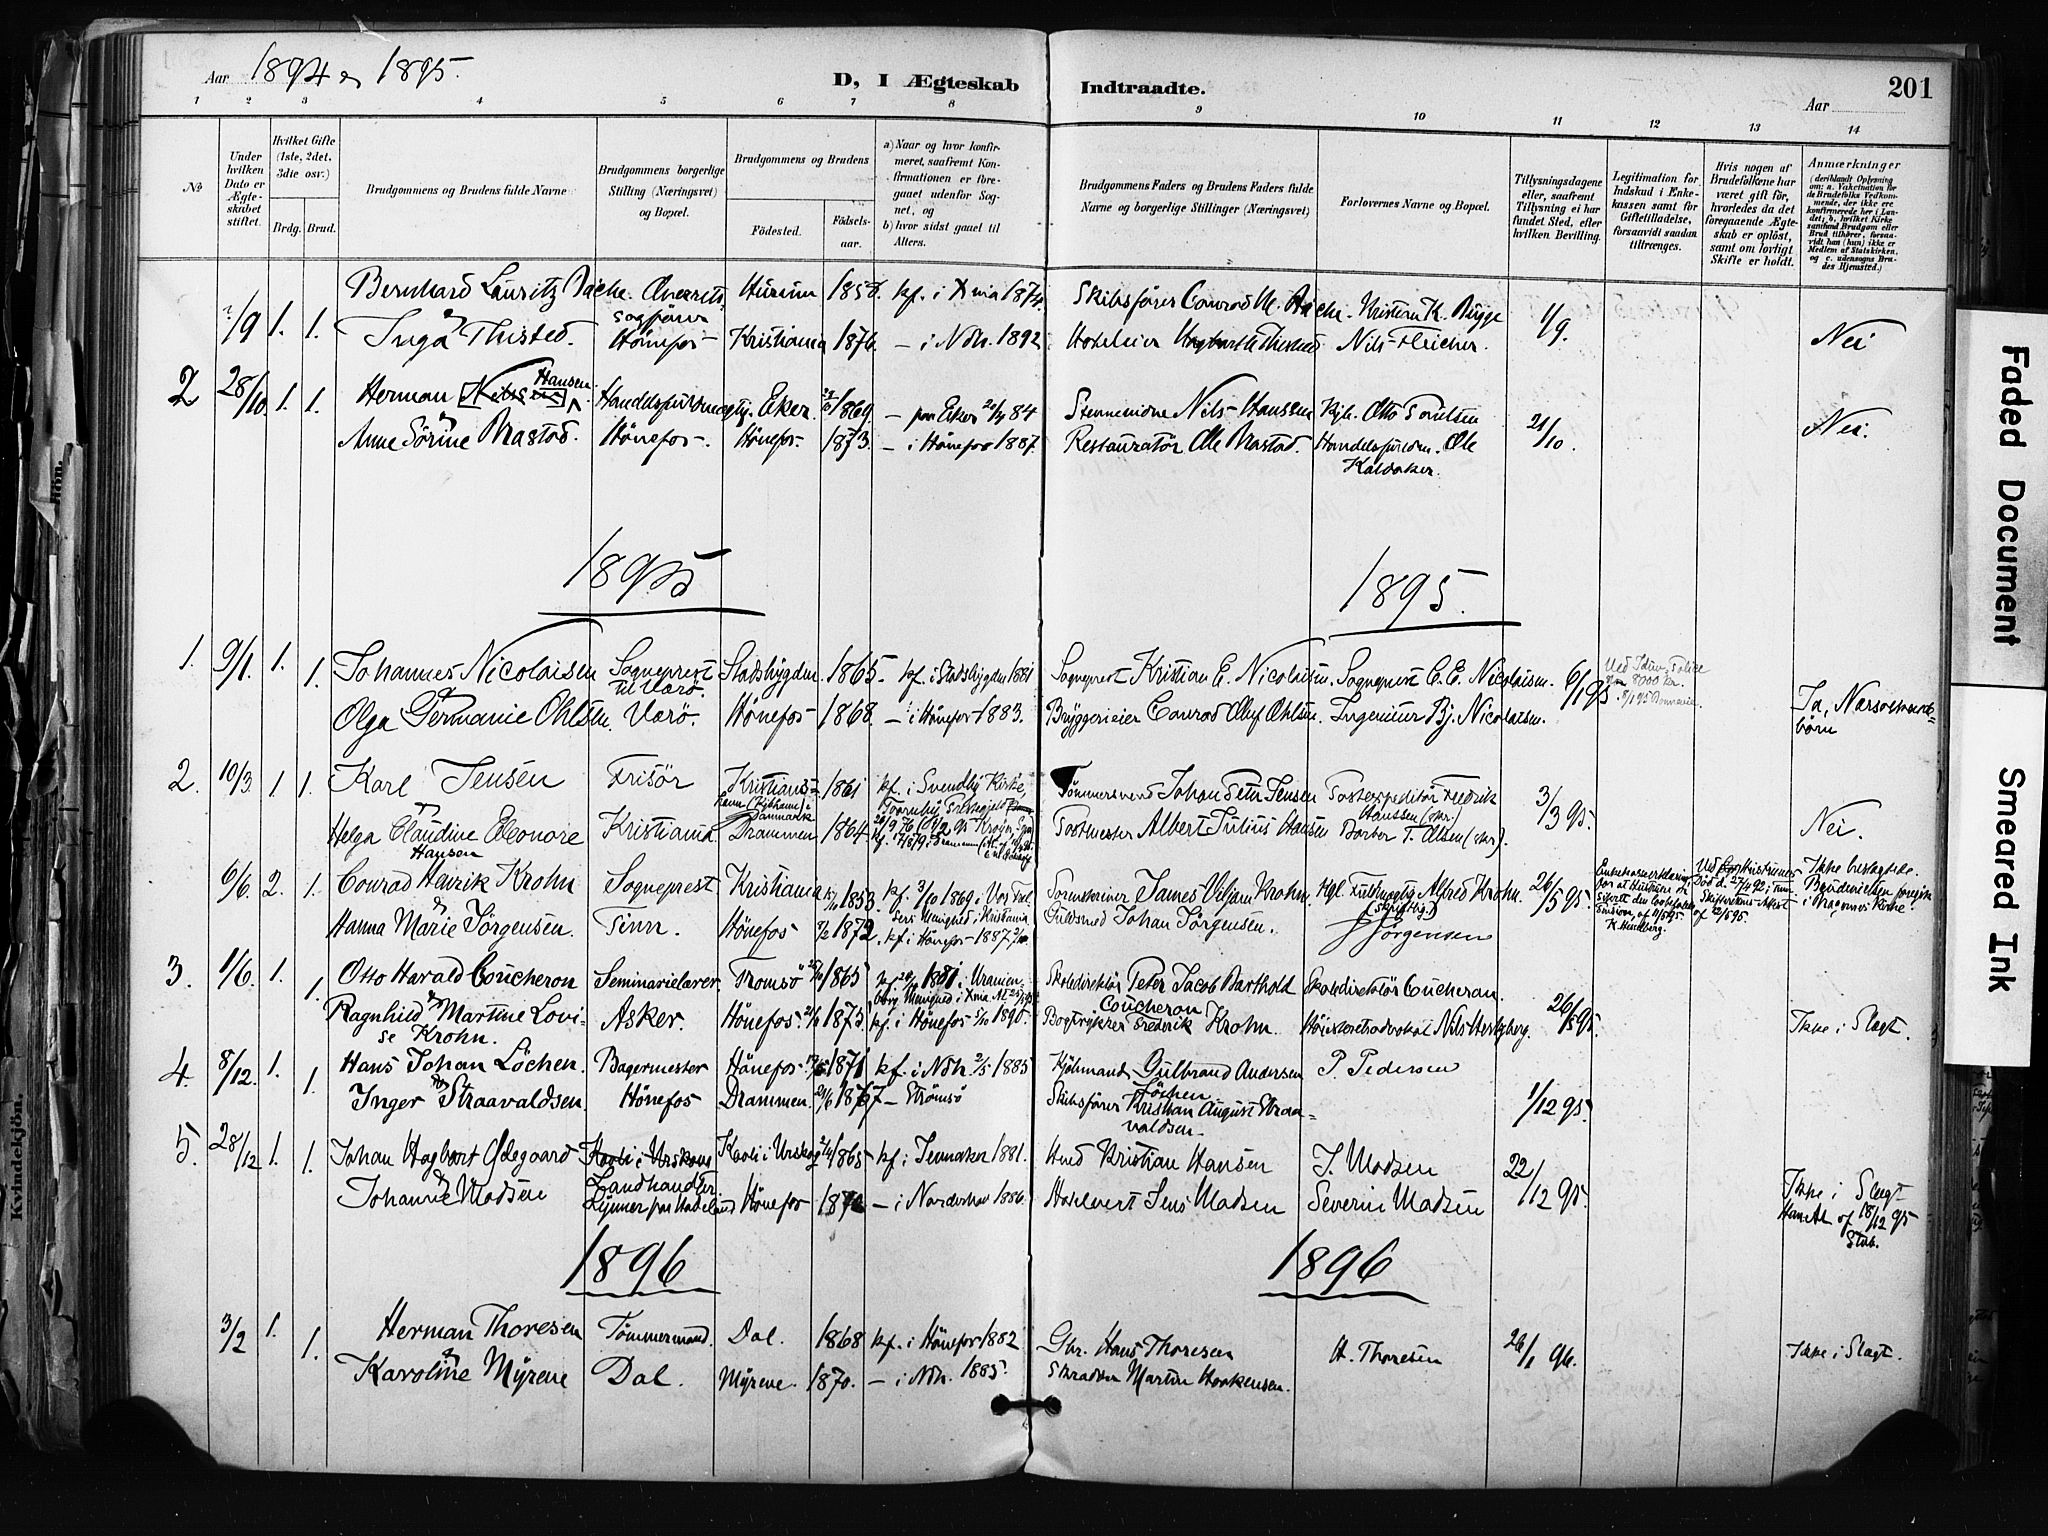 Aar 1894 og 1895.
D, I Ægteskab Indtraadte.
Aar
201
1 2 3 4 5 6 7 8 9 10 11 12 13 14
No
Under hvilken Dato er Ægteskabet stiftet.
Hvilket Gifte (1ste, 2det, 3die osv.)
Brdg. Brud.
Brudgommens og Brudens fulde Navne
Brudgommens borgerlige Stilling (Næringsvei) og Bopæl.
Brudgommens og Brudens
Fødested. Fødselsaar.
a) Naar og hvor konfirmeret, saafremt Konfirmationen er foregaaet udenfor Sognet, og
b) hvor sidst gaaet til Alters.
Brudgommens Faders og Brudens Faders fulde Navne og borgerlige Stillinger (Næringsvei)
Forlovernes Navne og Bopæl.
Tillysningsdagene eller, saafremt Tillysning ei har fundet Sted, efter hvilken Bevilling.
Legitimation for Indskud i Enkekassen samt for Giftetilladelse, forsaavidt saadan tiltrænges.
Hvis nogen af Brudefolkene har været gift før, hvorledes da det foregaaende Ægteskab er opløst, samt om lovligt Skifte er holdt.
Anmærkninger
(deriblandt Oplysning om: a. Vakcination for de Brudefolks Vedkommende, der ikke ere konfirmerede her i Landet; b. hvilket Kirkesamfund Brudgom eller Brud tilhører, forsaavidt han (hun) ikke er Medlem af Statskirken, og c. udensogns Brudes Hjemsted.)
/9 1. 1. Bernhard Lauritz Bache. Overretssagfører Hurum 1858. kf. i Xnia 1874. Skibsfører Conrad M. Bache. Kristian K. Bugge 1/9.
& Inga Thisted. Hönefos Kristiania 1876. — i Ndh. 1892 Hoteleier Thisted Nils Fleicher. Nei
2 28/10 1. 1. Herman [Nilsen] Hansen Handelsfuldmægtg. Eker. 1869 — paa Eker 84 Nils Hanssen Kjb. Otto Poulsen 21/10
& Anne Sörine Mastad. Hönefos. Hönefos 1873 — i Hönefos 1887. Restauratör Ole Mastad. Handelsfuldm. Ole Nei.
1895 1895.
1. 9/1 1. 1. Johannes Nicolaisen Sogneprest til Værö. Stadsbygden 1865. kf. i Stadsbygden 1881 Sogneprest Kristian E. Nicolaisen. Sogneprest C. E. Nicolaisen. 6/1 95 8000 kr.
& Olga Germanie Ohlsen. Værö. Hönefos 1868. — i Hönefos 1883. Bryggerieier Conrad Oluf Ohlsen. Ingeniør Bj. Nicolaisen. Ja, Næsösken­debörn
2. 10/3 1 1. Karl Jensen Frisör Kristianshavn (Kjöbhavn) i Danmark 1861 kf. i Svendby Kirke, Tømmersvend Johan Peter Jensen Postexpeditör Fredrik Hanssen (skr.) 3/3 95.
& Helga Claudine Eleonore Hansen Kristiania Drammen 1864. Postmester Albert Julius Hansen Barber T. Olsen (skr). Nei.
6/6. 2. 1. Conrad Henrik Krohn Sogneprest Kristiania 1853. kf. 3/10 1869 i Vor Frel­sers Menighed i Kristiania James Viljam Krohn. Kgl. Fuldmægtig Alfred Krohn. (skriftlig.) 26/5 95. Ikke beslægtede. Brudevielsen foregik i Bragernes Kirke.
& Hanna Marie Jörgensen. Tinn. Hönefos 1872. kf. i Hönefos 1887 Guldsmed Johan Jörgensen. J Jörgensen
3. 1/6. 1. 1. Otto Harald Coucheron Seminarielærer Tromsö 1865 kf. 1881 i Uranienborg Menighed i Xnia Skoledirektör Peter Jacob Barthold Coucheron Skoledirektör Coucheron. 26/5 95.
& Ragnhild Martine Lovise Krohn. Asker. Hönefos 1873. kf. i Hönefos 1890. Bogtrykker Frederik Krohn. Höiesteretsadvokat Nils Hertzberg. Ikke i Slægt.
4. 8/12. 1. 1. Hans Johan Löchen. Bagermester Hönefos 1871 kf. i Ndh. 2/5 1885 Kjöbmand Gulbrand Andersen Löchen P. Pedersen 1/12 95.
og Inger Straavaldsen. Hönefos Drammen. 1867 — Strömsö Skibsförer Kristian August Straavaldsen.
5. 28/12 1. 1. Johan Hagbart Ödegaard Landhandler Kooli i Urskog 1865 kf. i Jevnaker 1881. Hmd Kristian Hansen J. Madsen 22/12 95.
& Johanne Madsen Lynner paa Hadeland Hönefos — i Norderhov 1886. Hotelvert Jens Madsen Severin Madsen Ikke i Slægt Han Al. af 18/12 95 Stab.
1896 1896
3/2 1. 1. Herman Thoresen Tömmermand. Dal. 1868 kf. i Hönefos 1882 Gbr. Hans Thoresen H. Thoresen 26/1 96. Ikke i Slægt.
& Karoline Myrene Dal. Myrene. 1870. — i Ndh. 1885. Skrædder Martin Haakensen.
Faded Document
Smeared Ink
Kvindekjön.